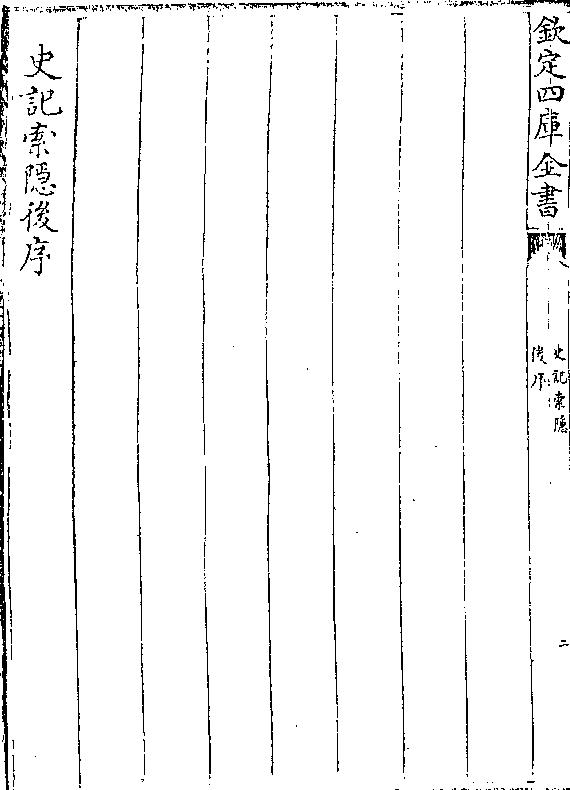 欽定四庫全書
史記索隱
後序
二
史記索隱後序